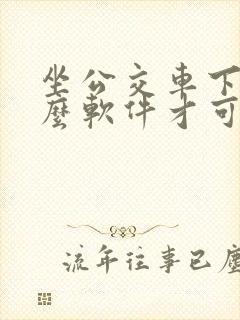 坐公交車下
麼軟件才可
流年往事已塵